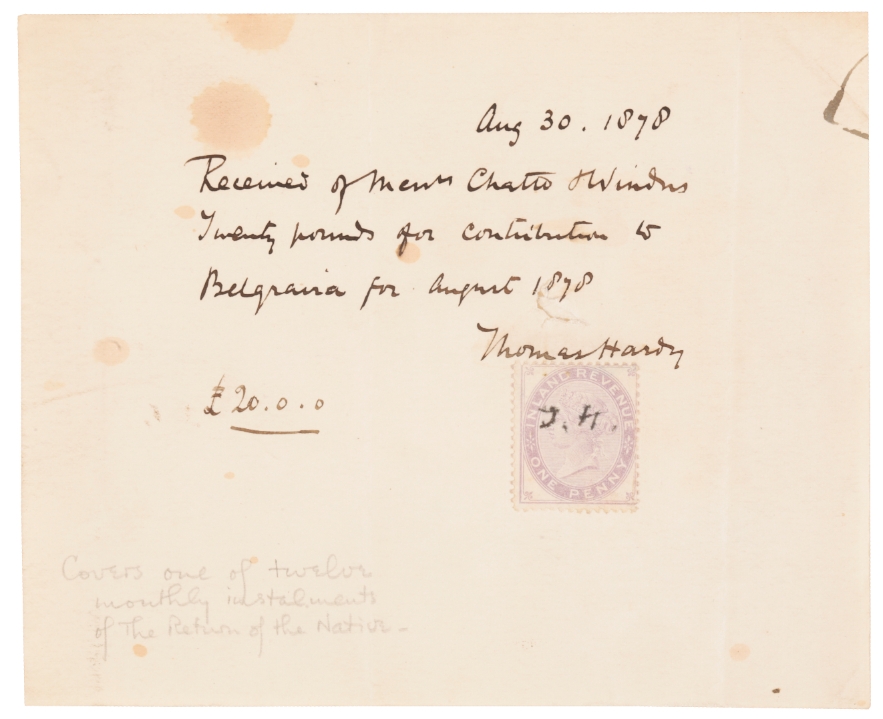 Aug 30. 1878
Received of Messrs Chatto & Windus
Twenty pounds for contribution to
Belgravia for August 1878
Thomas Hardy
£20.0.0
INLAND REVENUE
T. H.
ONE PENNY
Covers one of twelve
monthly instalments
of The Return of the Native –